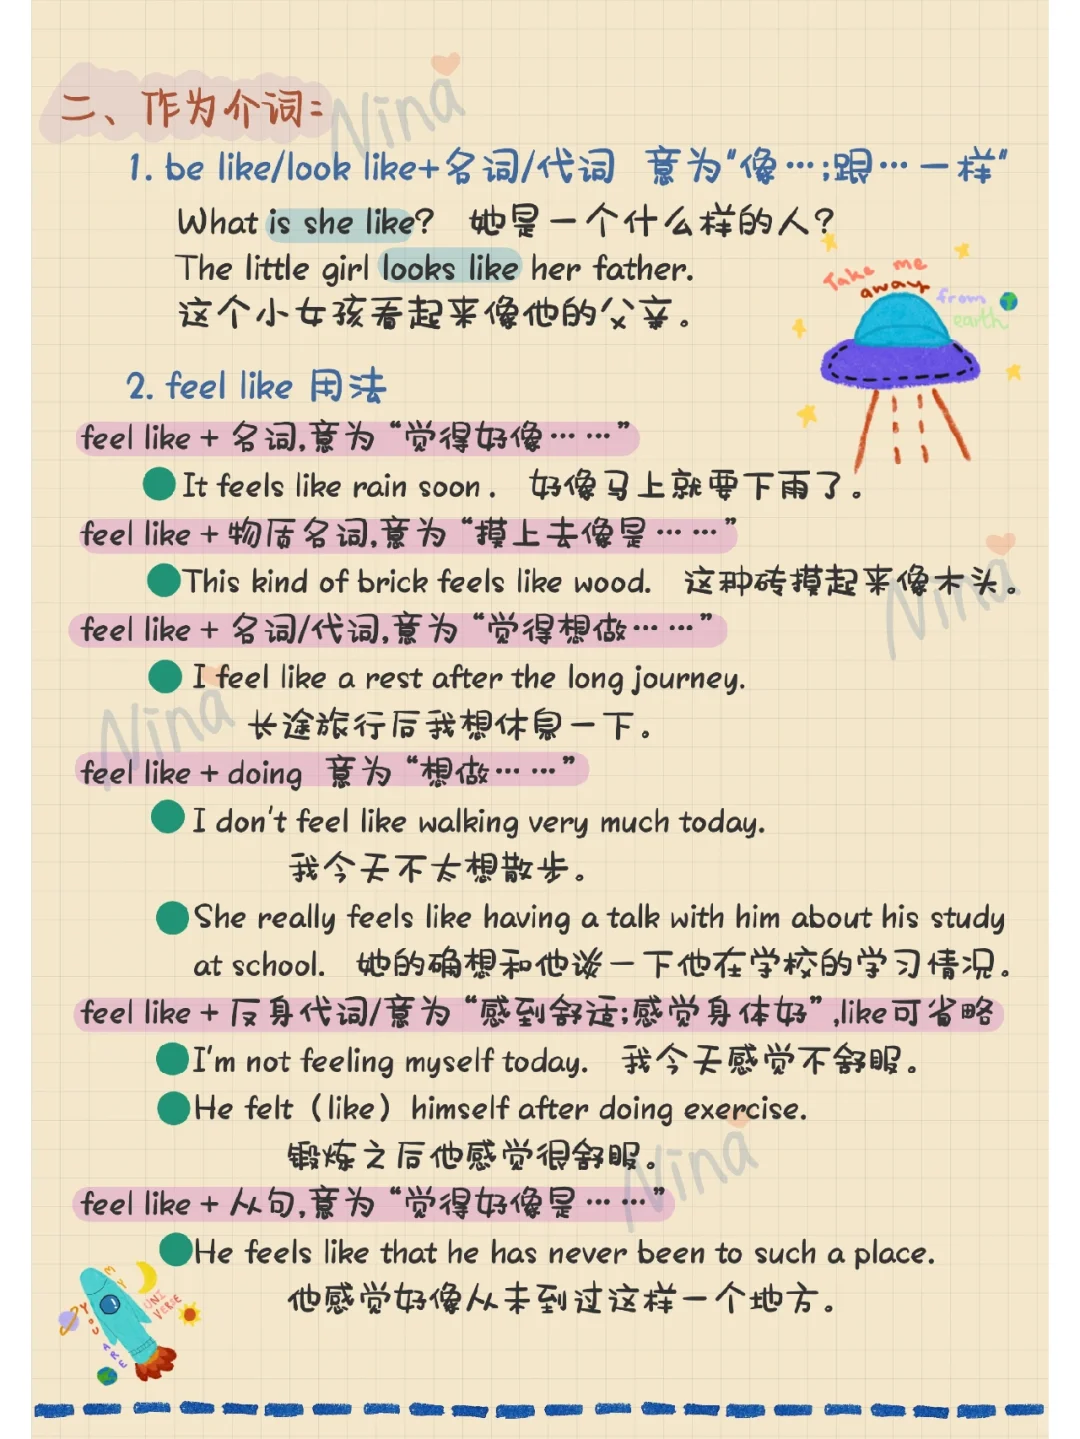 二、作为介词:
1. be like/look like+名词/代词 意为"像…;跟…一样"
What is she like? 她是一个什么样的人?
The little girl looks like her father.
这个小女孩看起来像他的父亲。
Take me
away
from
earth
2. feel like 用法
feel like + 名词,意为“觉得好像……”
It feels like rain soon. 好像马上就要下雨了。
feel like + 物质名词,意为“摸上去像是……”
This kind of brick feels like wood. 这种砖摸起来像木头。
feel like + 名词/代词,意为“觉得想做……”
I feel like a rest after the long journey.
长途旅行后我想休息一下。
feel like + doing 意为“想做……”
I don't feel like walking very much today.
我今天不太想散步。
She really feels like having a talk with him about his study
at school. 她的确想和他谈一下他在学校的学习情况。
feel like + 反身代词/意为“感到舒适;感觉身体好”,like可省略
I'm not feeling myself today. 我今天感觉不舒服。
He felt（like）himself after doing exercise.
锻炼之后他感觉很舒服。
feel like + 从句,意为“觉得好像是……”
He feels like that he has never been to such a place.
他感觉好像从未到过这样一个地方。
YOU ARE
MY
UNI
VERSE
Nina
Nina
Nina
Nina